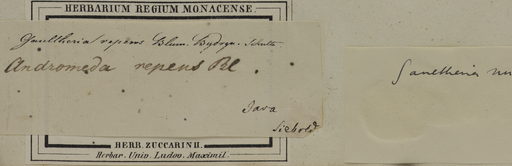 HERBARIUM REGIUM MONACENSE.
Gaultheria repens Blum. Schult
Andromeda repens Bl
Java
Siebold
HERB. ZUCCARINII.
Herbar. Univ. Ludov. Maximil.
Gaultheria